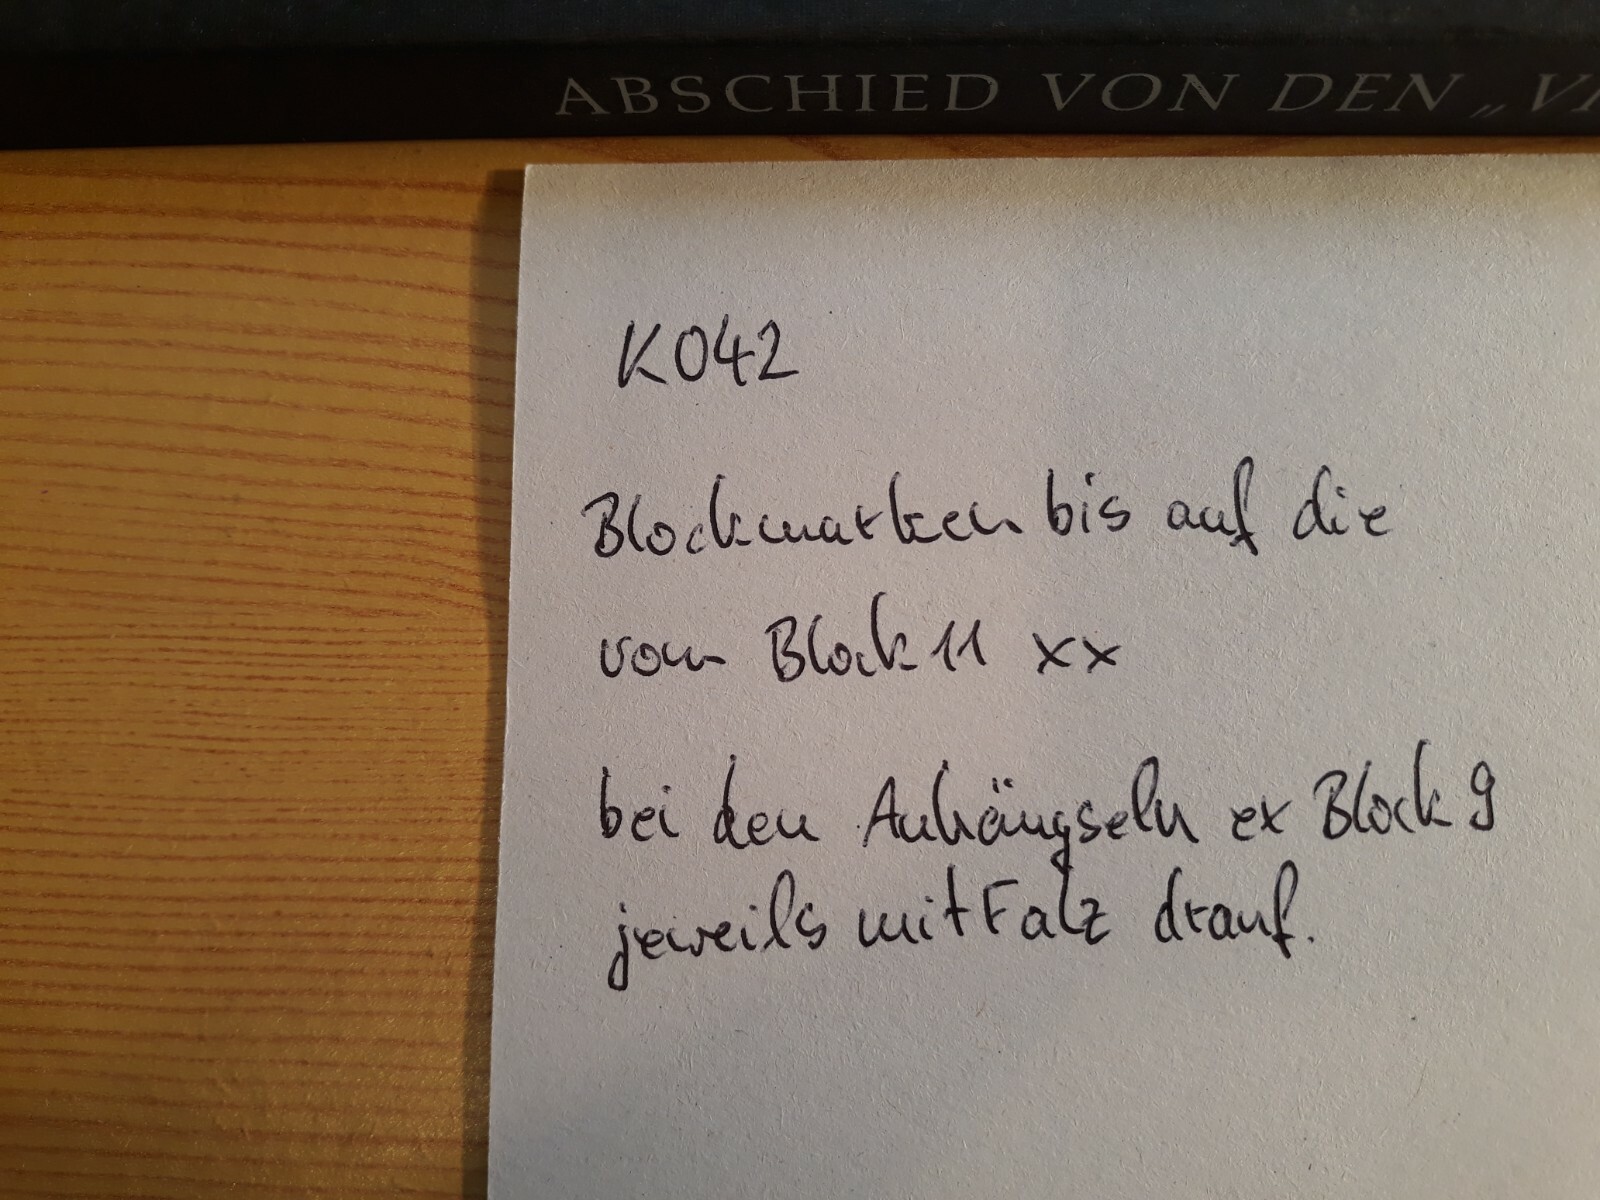 ABSCHIED VON DEN „VI
K042
Blockmarken bis auf die
vom Block 11 xx
bei den Anhängseln ex Block 9
jeweils mit Falz drauf.